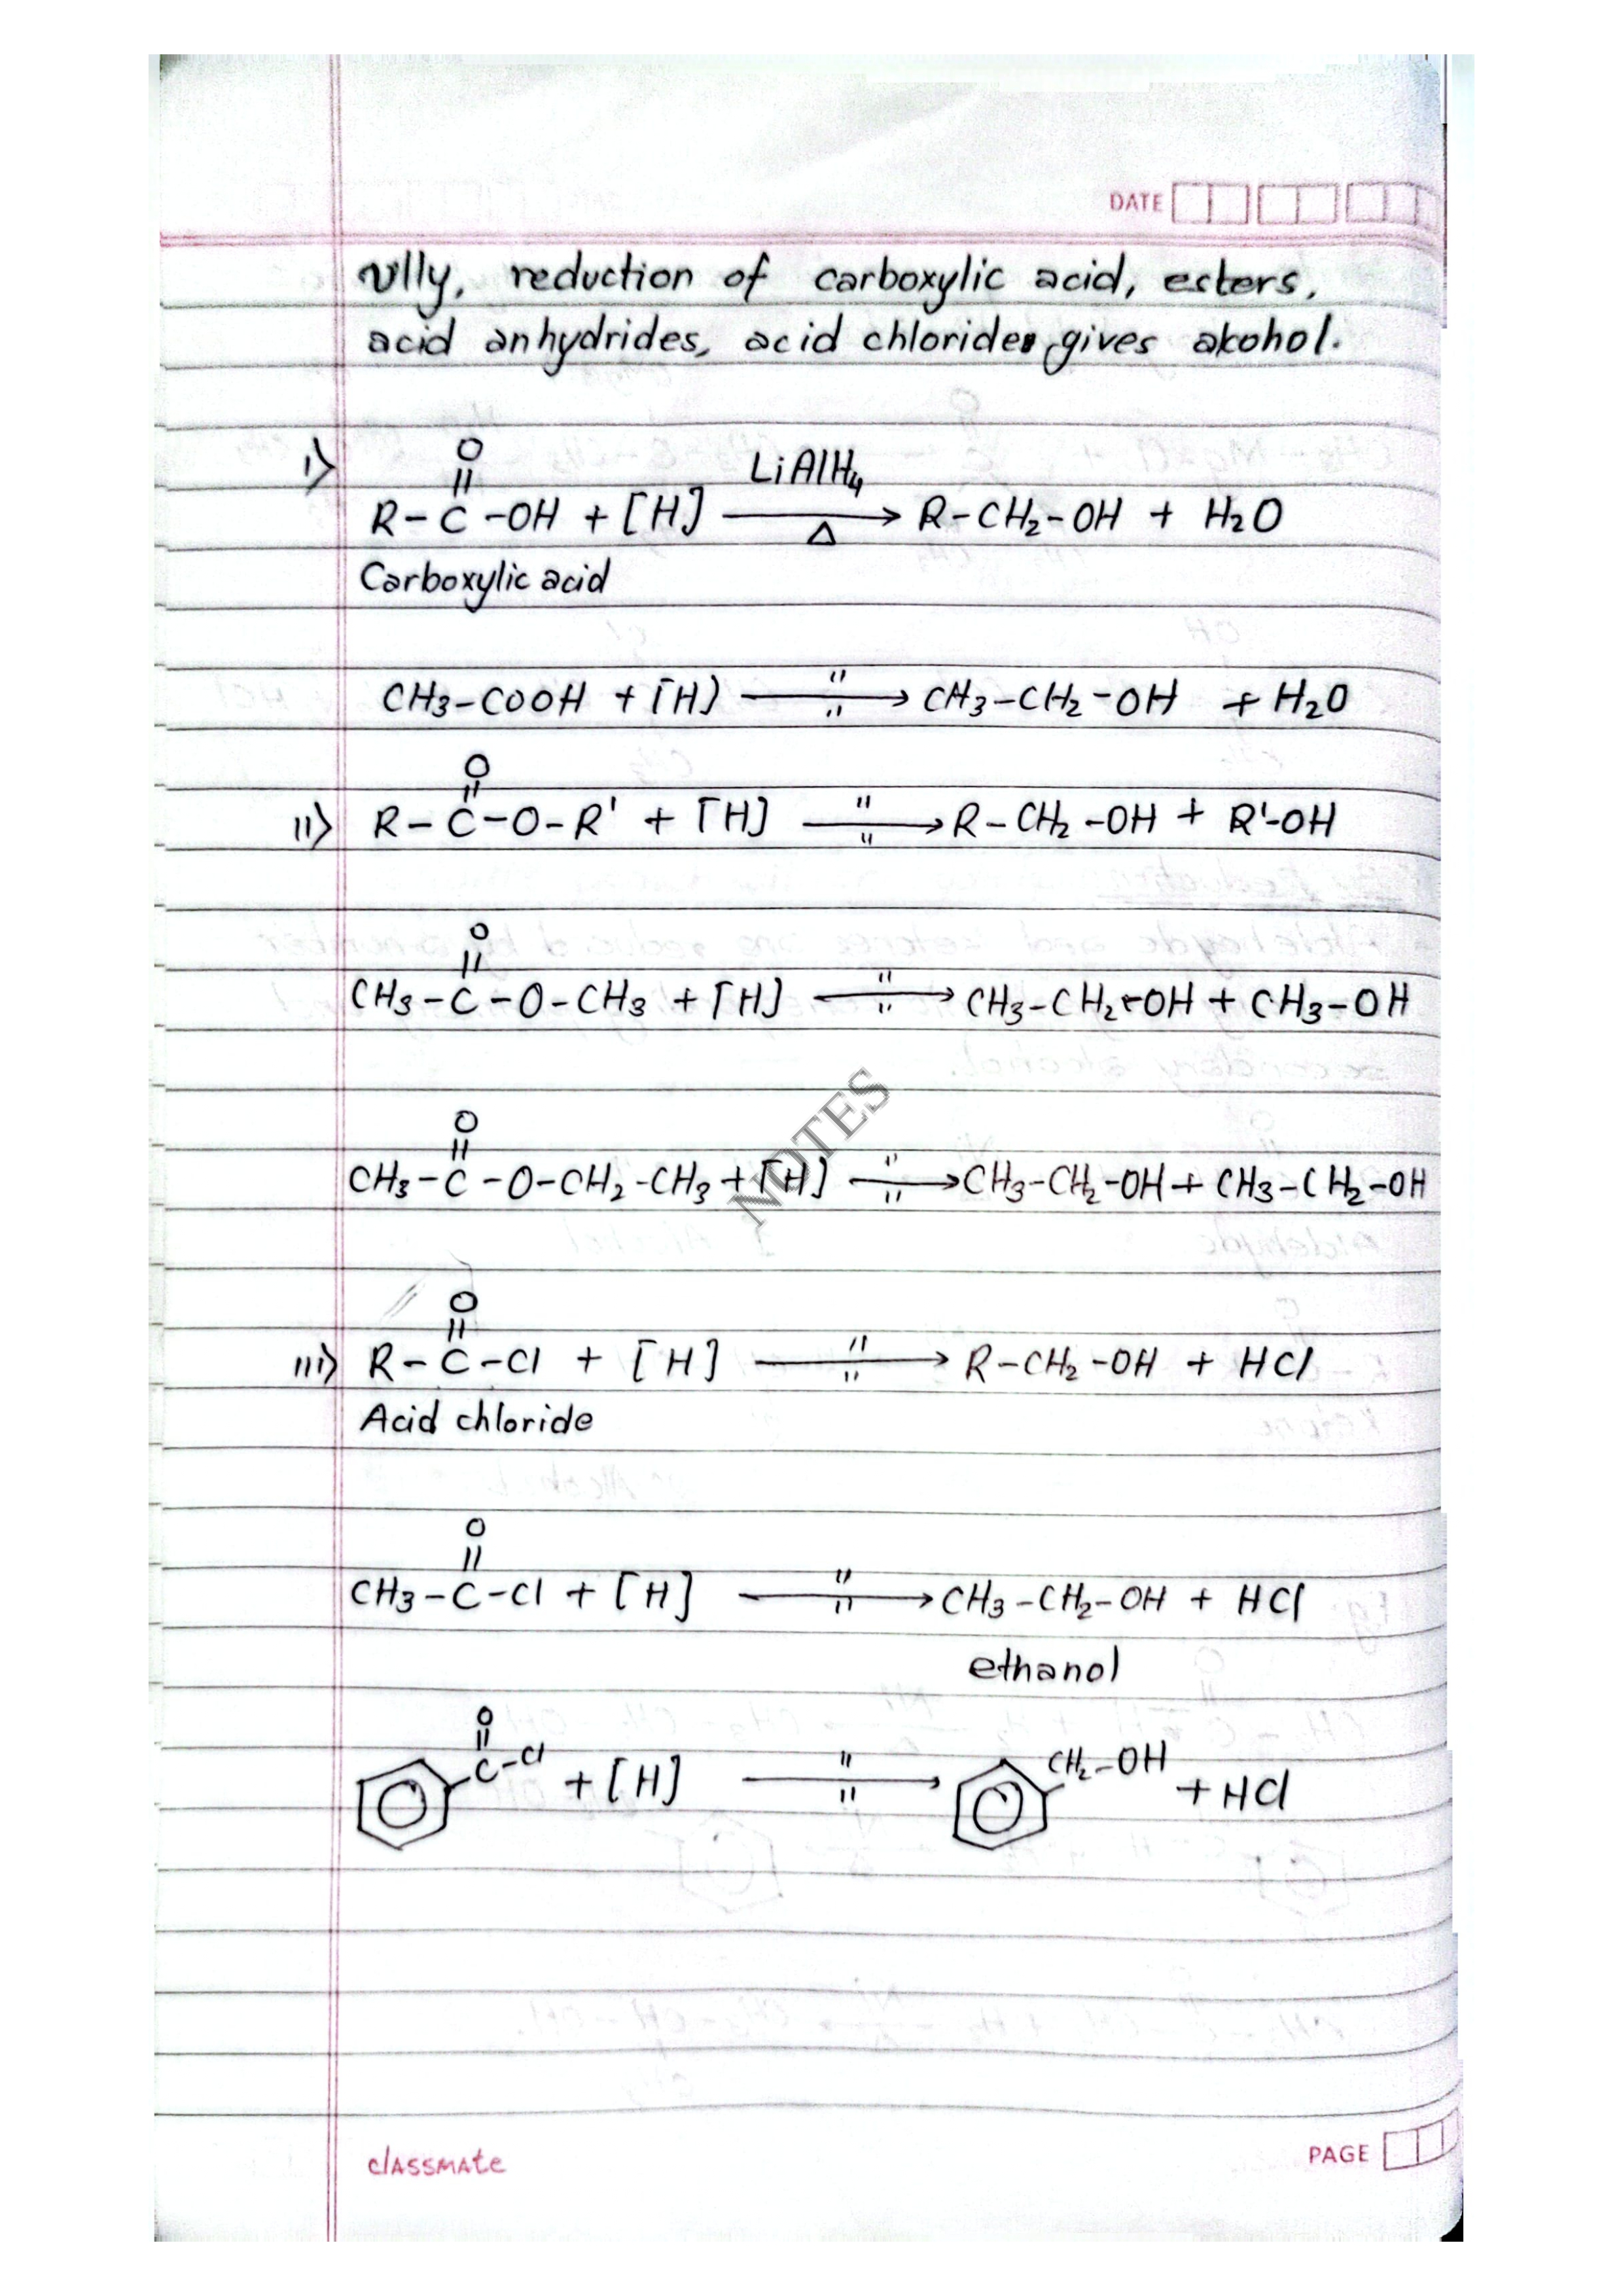 DATE
ully, reduction of carboxylic acid, esters,
acid anhydrides, acid chlorides gives alcohol.
O
LiAlH4
i> R-C-OH + [H] → R-CH2-OH + H2O
Δ
Carboxylic acid
"
CH3-COOH + [H] → CH3-CH2-OH + H2O
"
O
"
ii> R-C-O-R' + [H] → R-CH2-OH + R'-OH
"
O
"
CH3-C-O-CH3 + [H] → CH3-CH2-OH + CH3-OH
"
O
"
CH3-C-O-CH2-CH3 + [H] → CH3-CH2-OH + CH3-CH2-OH
"
NOTES
O
"
iii> R-C-Cl + [H] → R-CH2-OH + HCl
"
Acid chloride
O
"
CH3-C-Cl + [H] → CH3-CH2-OH + HCl
"
ethanol
O
"
C-Cl + [H] → CH2-OH + HCl
"
classmate
PAGE